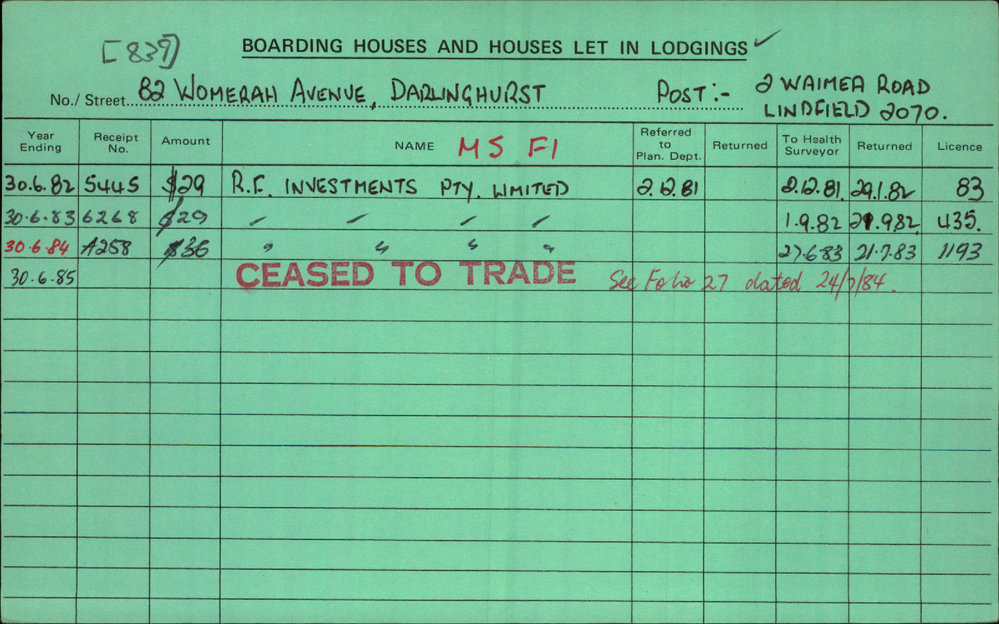 [839]
BOARDING HOUSES AND HOUSES LET IN LODGINGS ✓
No./ Street 82 WOMERAH AVENUE, DARLINGHURST POST:- 2 WAIMEA ROAD
LINDFIELD 2070.
Year Ending Receipt No. Amount NAME MS FI Referred to Plan. Dept. Returned To Health Surveyor Returned Licence
30.6.82 5445 $29 R.F. INVESTMENTS PTY. LIMITED 2.12.81 2.12.81 29.1.82 83
30.6.83 6268 $29 " " " " 1.9.82 21.9.82 435.
30.6.84 A258 $36 " " " " 27.6.83 21.7.83 1193
30.6.85 CEASED TO TRADE See Folio 27 dated 24/7/84.